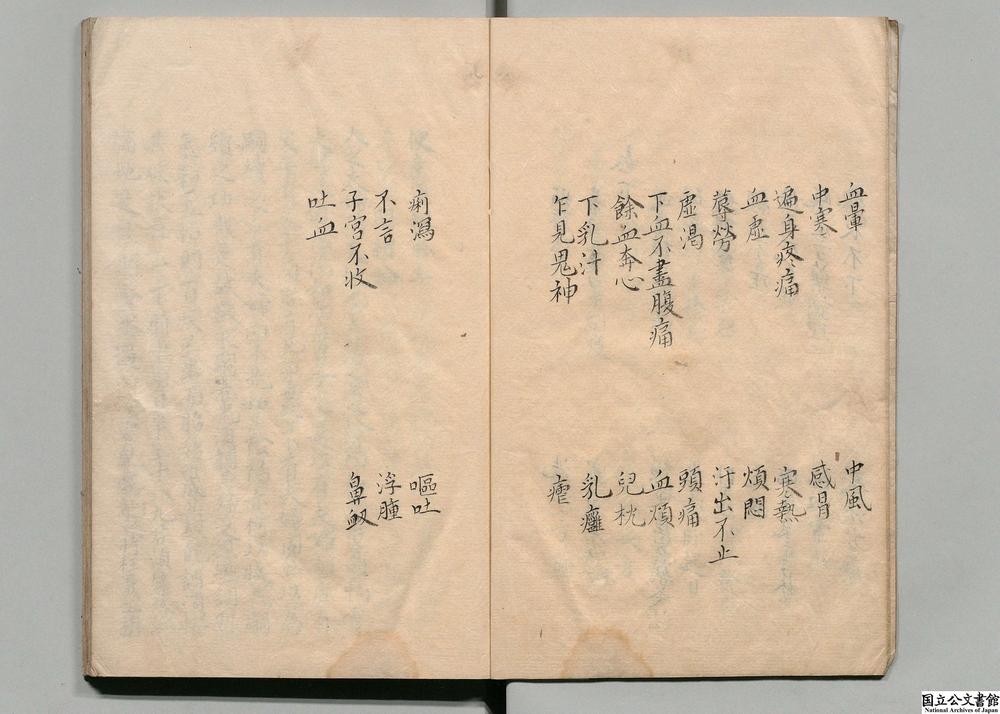 血暈
中風
中寒
感冒
遍身疼痛
寒熱
血虛
煩悶
蓐勞
汗出不止
虛渴
頭痛
下血不盡腹痛
血煩
餘血奔心
兒枕
下乳汁
乳癰
乍見鬼神
瘧
痢瀉
嘔吐
不言
浮腫
子宮不收
鼻衂
吐血
国立公文書館
National Archives of Japan